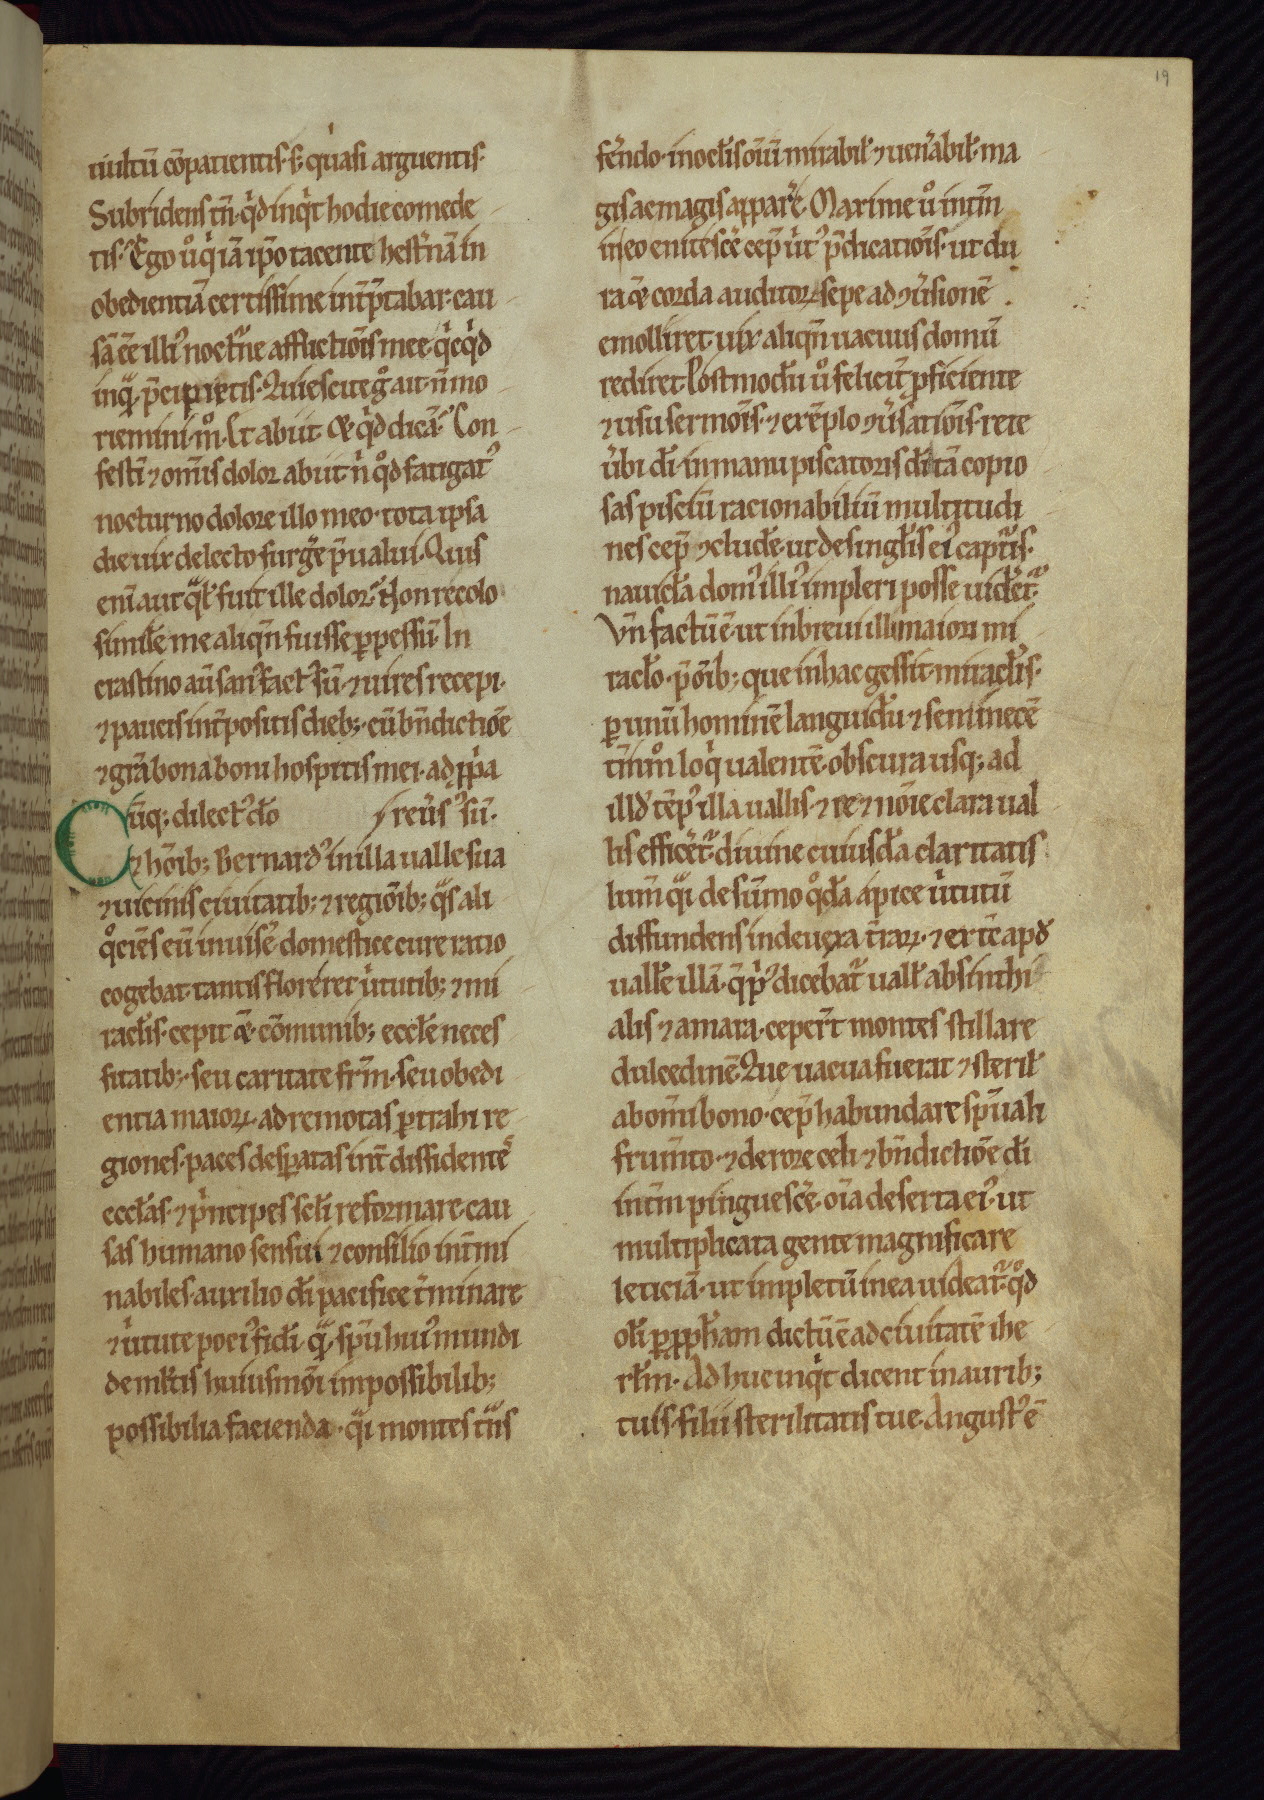 19
uultū cōpatientis·s; quasi arguentis·
Subridens tn̄ qd inqt hodie comede
tis. Ego uo qi iā ipo tacente hestnā in
obedientiā certissime intptabar cau
sā ēē illi noctne afflictiōis mee. qcqd
inq pcipietis. Quiescite g ait. n mo
riemini m. Et abiit. Et qd dicā? Con
festī ⁊ omis dolor abiit. n qd fatigat
nocturno dolore illo meo. tota ipsa
die uix de lecto surge p̄ualui. Quis
enī aut qlis fuit ille dolor? Non recolo
simile me aliqn fuisse ppessū. In
crastino aū san fact sū. ⁊ uires recepi.
⁊ paucis intpositis dieb; cū bn̄dictiōe
⁊ gra bona boni hospitis mei. ad ppa
Cūq; dilect do reus sū.
⁊ hoīb; Bernard in illa ualle sua
⁊ uicinis ciuitatib; ⁊ regiōib; qs ali
qciēs eū inuise domestice cure ratio
cogebat. tantis floreret ututib; ⁊ mi
raclis. cepit ⁊ cōmunib; eccle neces
sitatib; seu caritate frm. seu obedi
entia maior. ad remotas ptrahi re
giones. paces despatas int dissidente
ecclas. ⁊ pncipes scli reformare. cau
sas humano sensui ⁊ consilio intmi
nabiles. auxilio di pacifice tminare
⁊ utute poci fidi q spu hui mundi
de mltis huiusmōi impossibilib;
possibilia facienda. qi montes tns
fendo. in oclis oīum mirabil ⁊ uenabil ma
gis ac magis appare. Maxime uo intm
in eo enitesce cep ut pdicatiōis. ut du
ra ⁊ corda auditor sepe ad ɔusionē
emolliret. uix aliqn uacuus domū
rediret. Postmodu uo felicit pficiente
⁊ usu sermōis. ⁊ exēplo ɔusatiōis. rete
ubi di in manu piscatoris di tā copio
sas pisciū racionabiliū multitudi
nes cep ɔclude. ut de singlis ei captis.
nauicla dom illi impleri posse uidet.
Vn factū ē. ut in breui illi maiori mi
raclo. p oīb; que in hac gessit miraclis.
p unū hominē languidu ⁊ seminecē
tm m loq ualentē. obscura usq; ad
illd tēp illa uallis. ⁊ re ⁊ noīe clara ual
lis efficet. diuine cuiusda claritatis
lum qi de sūmo qda apice ututū
diffundens in deuexa trar. ⁊ ex tē apd
ualle illā. q p dicebat uall absinthi
alis ⁊ amara. cepert montes stillare
dulcedinē. Que uacua fuerat ⁊ steril
ab omi bono. cep habundare spuali
frumto. ⁊ de rore celi ⁊ bn̄dictiōe di
intm pinguesce. oīa deserta ei. ut
multiplicata gente magnificare
leticiā. ut impletū in ea uideat. qd
oli p ppham dictū ē ad ciuitatē ihe
rlm. Adhuc inqt dicent in aurib;
tuis. filii sterilitatis tue. Angust ē